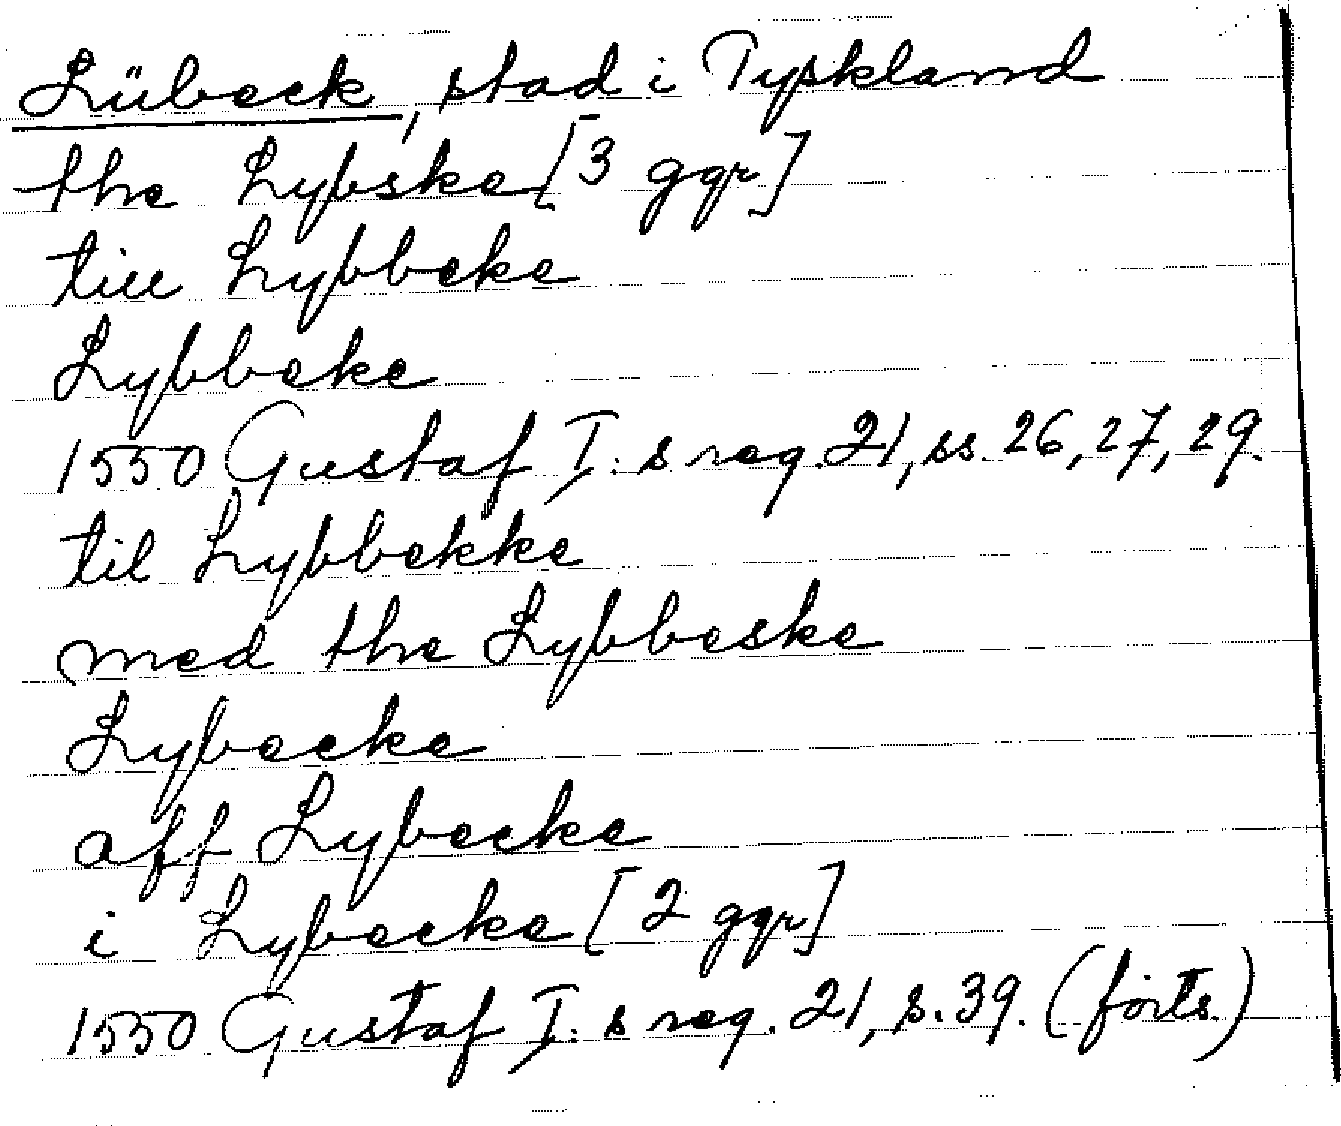 Lübeck, stad i Tyskland
the Lybske [3 ggr]
till Lybbeke
Lybbeke
1550 Gustaf I:s reg. 21, ss. 26, 27, 29.
til Lybbekke
med the Lybbeske
Lybecke
aff Lybecke
i Lybecke [2 ggr]
1550 Gustaf I:s reg. 21, s. 39. (forts.)